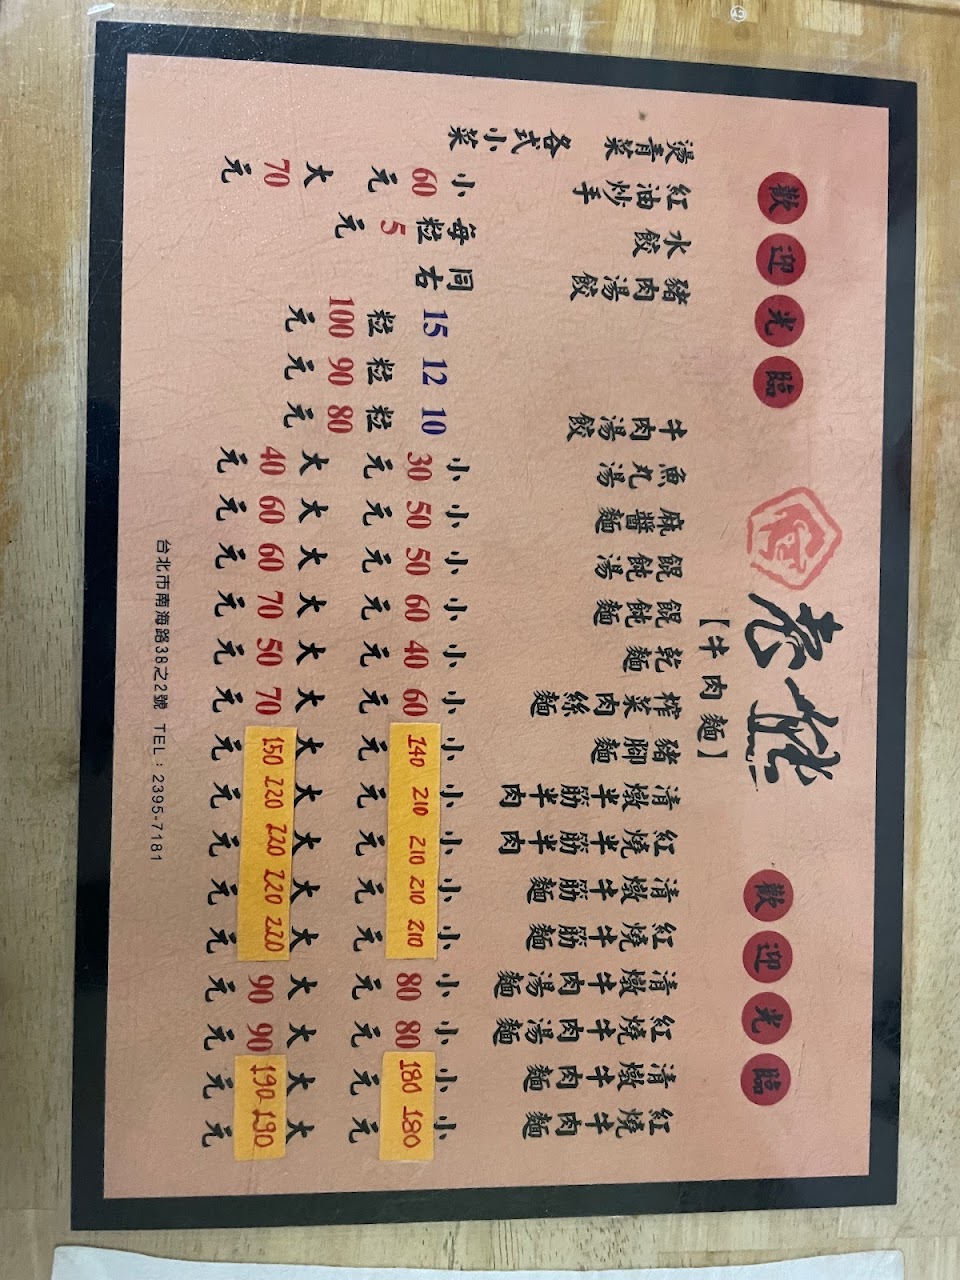 歡迎光臨
老熊
【牛肉麵】
歡迎光臨
紅燒牛肉麵 小180元 大190元
清燉牛肉麵 小180元 大190元
紅燒牛肉湯麵 小80元 大90元
清燉牛肉湯麵 小80元 大90元
紅燒牛筋麵 小210元 大220元
清燉牛筋麵 小210元 大220元
紅燒半筋半肉 小210元 大220元
清燉半筋半肉 小210元 大220元
豬腳麵 小140元 大150元
榨菜肉絲麵 小60元 大70元
乾麵 小40元 大50元
餛飩麵 小60元 大70元
餛飩湯 小50元 大60元
麻醬麵 小50元 大60元
魚丸湯 小30元 大40元
牛肉湯餃 10粒80元
12粒90元
15粒100元
豬肉湯餃 同右
水餃 每粒5元
紅油炒手 小60元 大70元
燙青菜 各式小菜
台北市南海路38之2號 TEL：2395-7181